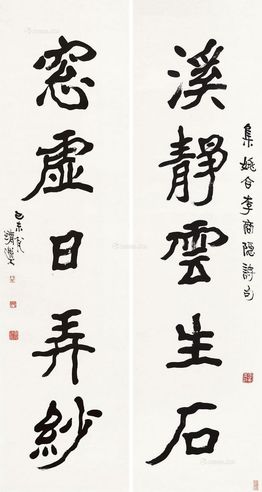 集姚合李商隱詩句
溪靜雲生石
窓虛日弄紗
己未夏